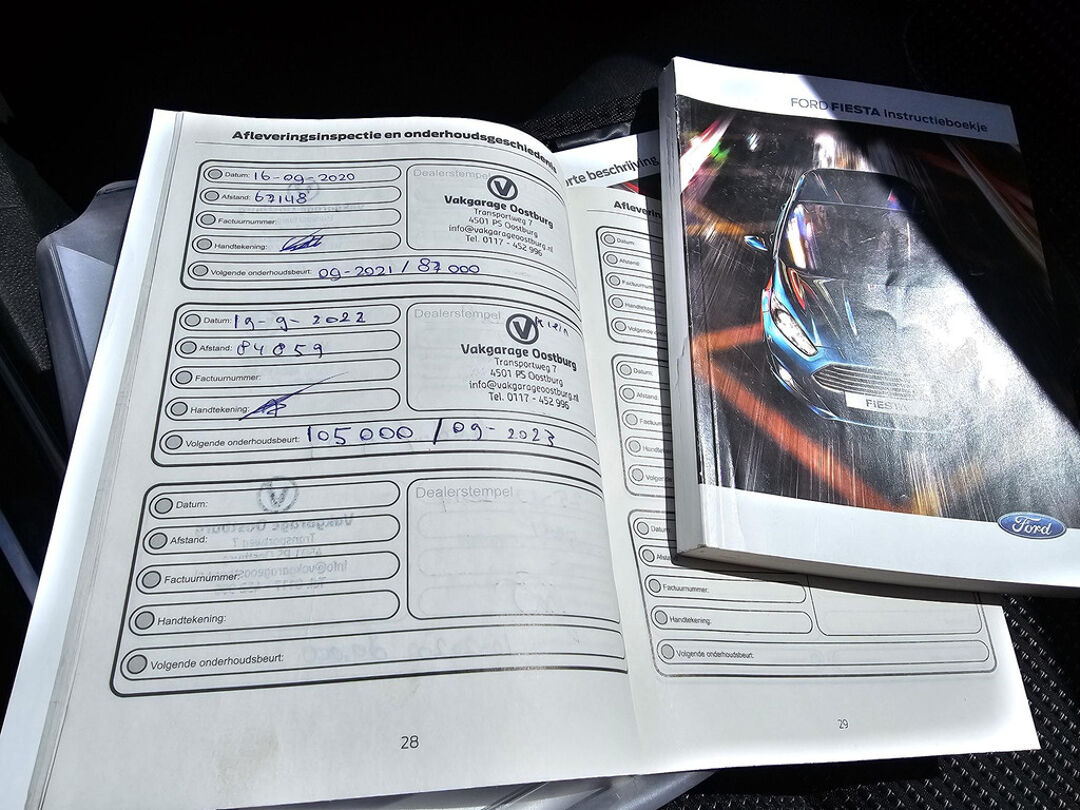 Afleveringsinspectie en onderhoudsgeschiedenis
Datum: 16-09-2020
Afstand: 67148
Factuurnummer:
Handtekening:
Volgende onderhoudsbeurt: 09-2021 / 87000
Dealerstempel
Vakgarage Oostburg
Transportweg 7
4501 PS Oostburg
info@vakgarageoostburg.nl
Tel. 0117 - 452 996
Datum: 19-9-2022
Afstand: 84859
Factuurnummer:
Handtekening:
Volgende onderhoudsbeurt: 105000 / 09-2023
Dealerstempel
klein
Vakgarage Oostburg
Transportweg 7
4501 PS Oostburg
info@vakgarageoostburg.nl
Tel. 0117 - 452 996
Datum:
Afstand:
Factuurnummer:
Handtekening:
Volgende onderhoudsbeurt:
Dealerstempel
28
orte beschrijving
Afleverin
Datum:
Afstand:
Factuurn
Handteken
Volgende
Datum:
Afstand:
Factuurn
Handteke
Volgend
Datum:
Afsta
Factuurnummer:
Handtekening:
Volgende onderhoudsbeurt:
29
FORD FIESTA Instructieboekje
FIESTA
Ford